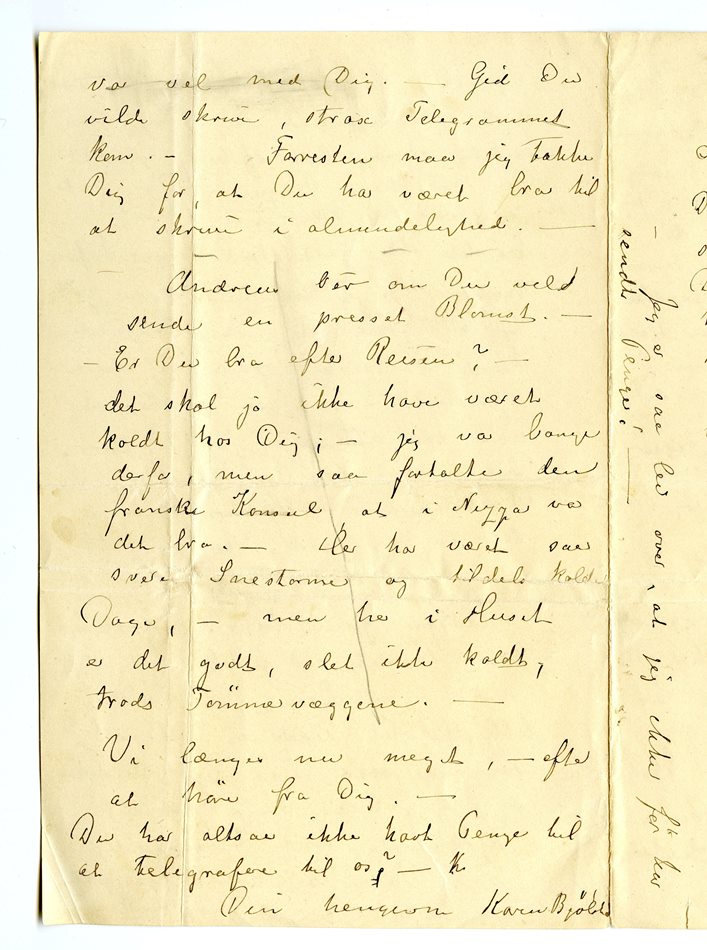 va vel med Dig. — Gid Du
vilde skrive, strax Telegrammet
kom. — Forresten maa jeg takke
Dig for, at Du ha været bra til
at skrive i almindelighed. —
Andrea ber om Du vild
sende en presset Blomst. —
— Er Du bra efter Reisen? —
det skal jo ikke have været
koldt hos Dig; — jeg va bange
derfo, men saa fortalte den
franske Konsul, at i Nizza va
det bra. — Her ha været saa
svere Snestorme og tildels kolde
Dage, — men he i Huset
e det godt, slet ikke koldt,
trods Tömmevæggene. —
Vi længes nu meget, — efte
at höre fra Dig. —
Du har altsaa ikke havt Penge til
at telegrafere til os? —
Din hengivne Karen Bjöl
— Jeg e saa lei over, at jeg ikke för har
sendt Penge! —